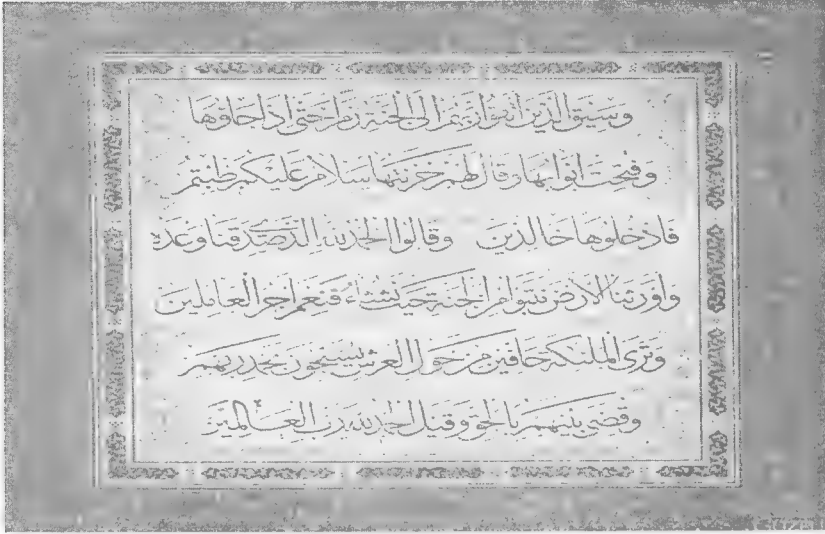 وسيق الذين اتقوا ربهم الى الجنة زمرا حتى اذا جاؤها
وفتحت ابوابها وقال لهم خزنتها سلام عليكم طبتم
فادخلوها خالدين وقالوا الحمد لله الذي صدقنا وعده
واورثنا الارض نتبوا من الجنة حيث نشاء فنعم اجر العاملين
وترى الملئكة حافين من حول العرش يسبحون بحمد ربهم
وقضي بينهم بالحق وقيل الحمد لله رب العالمين